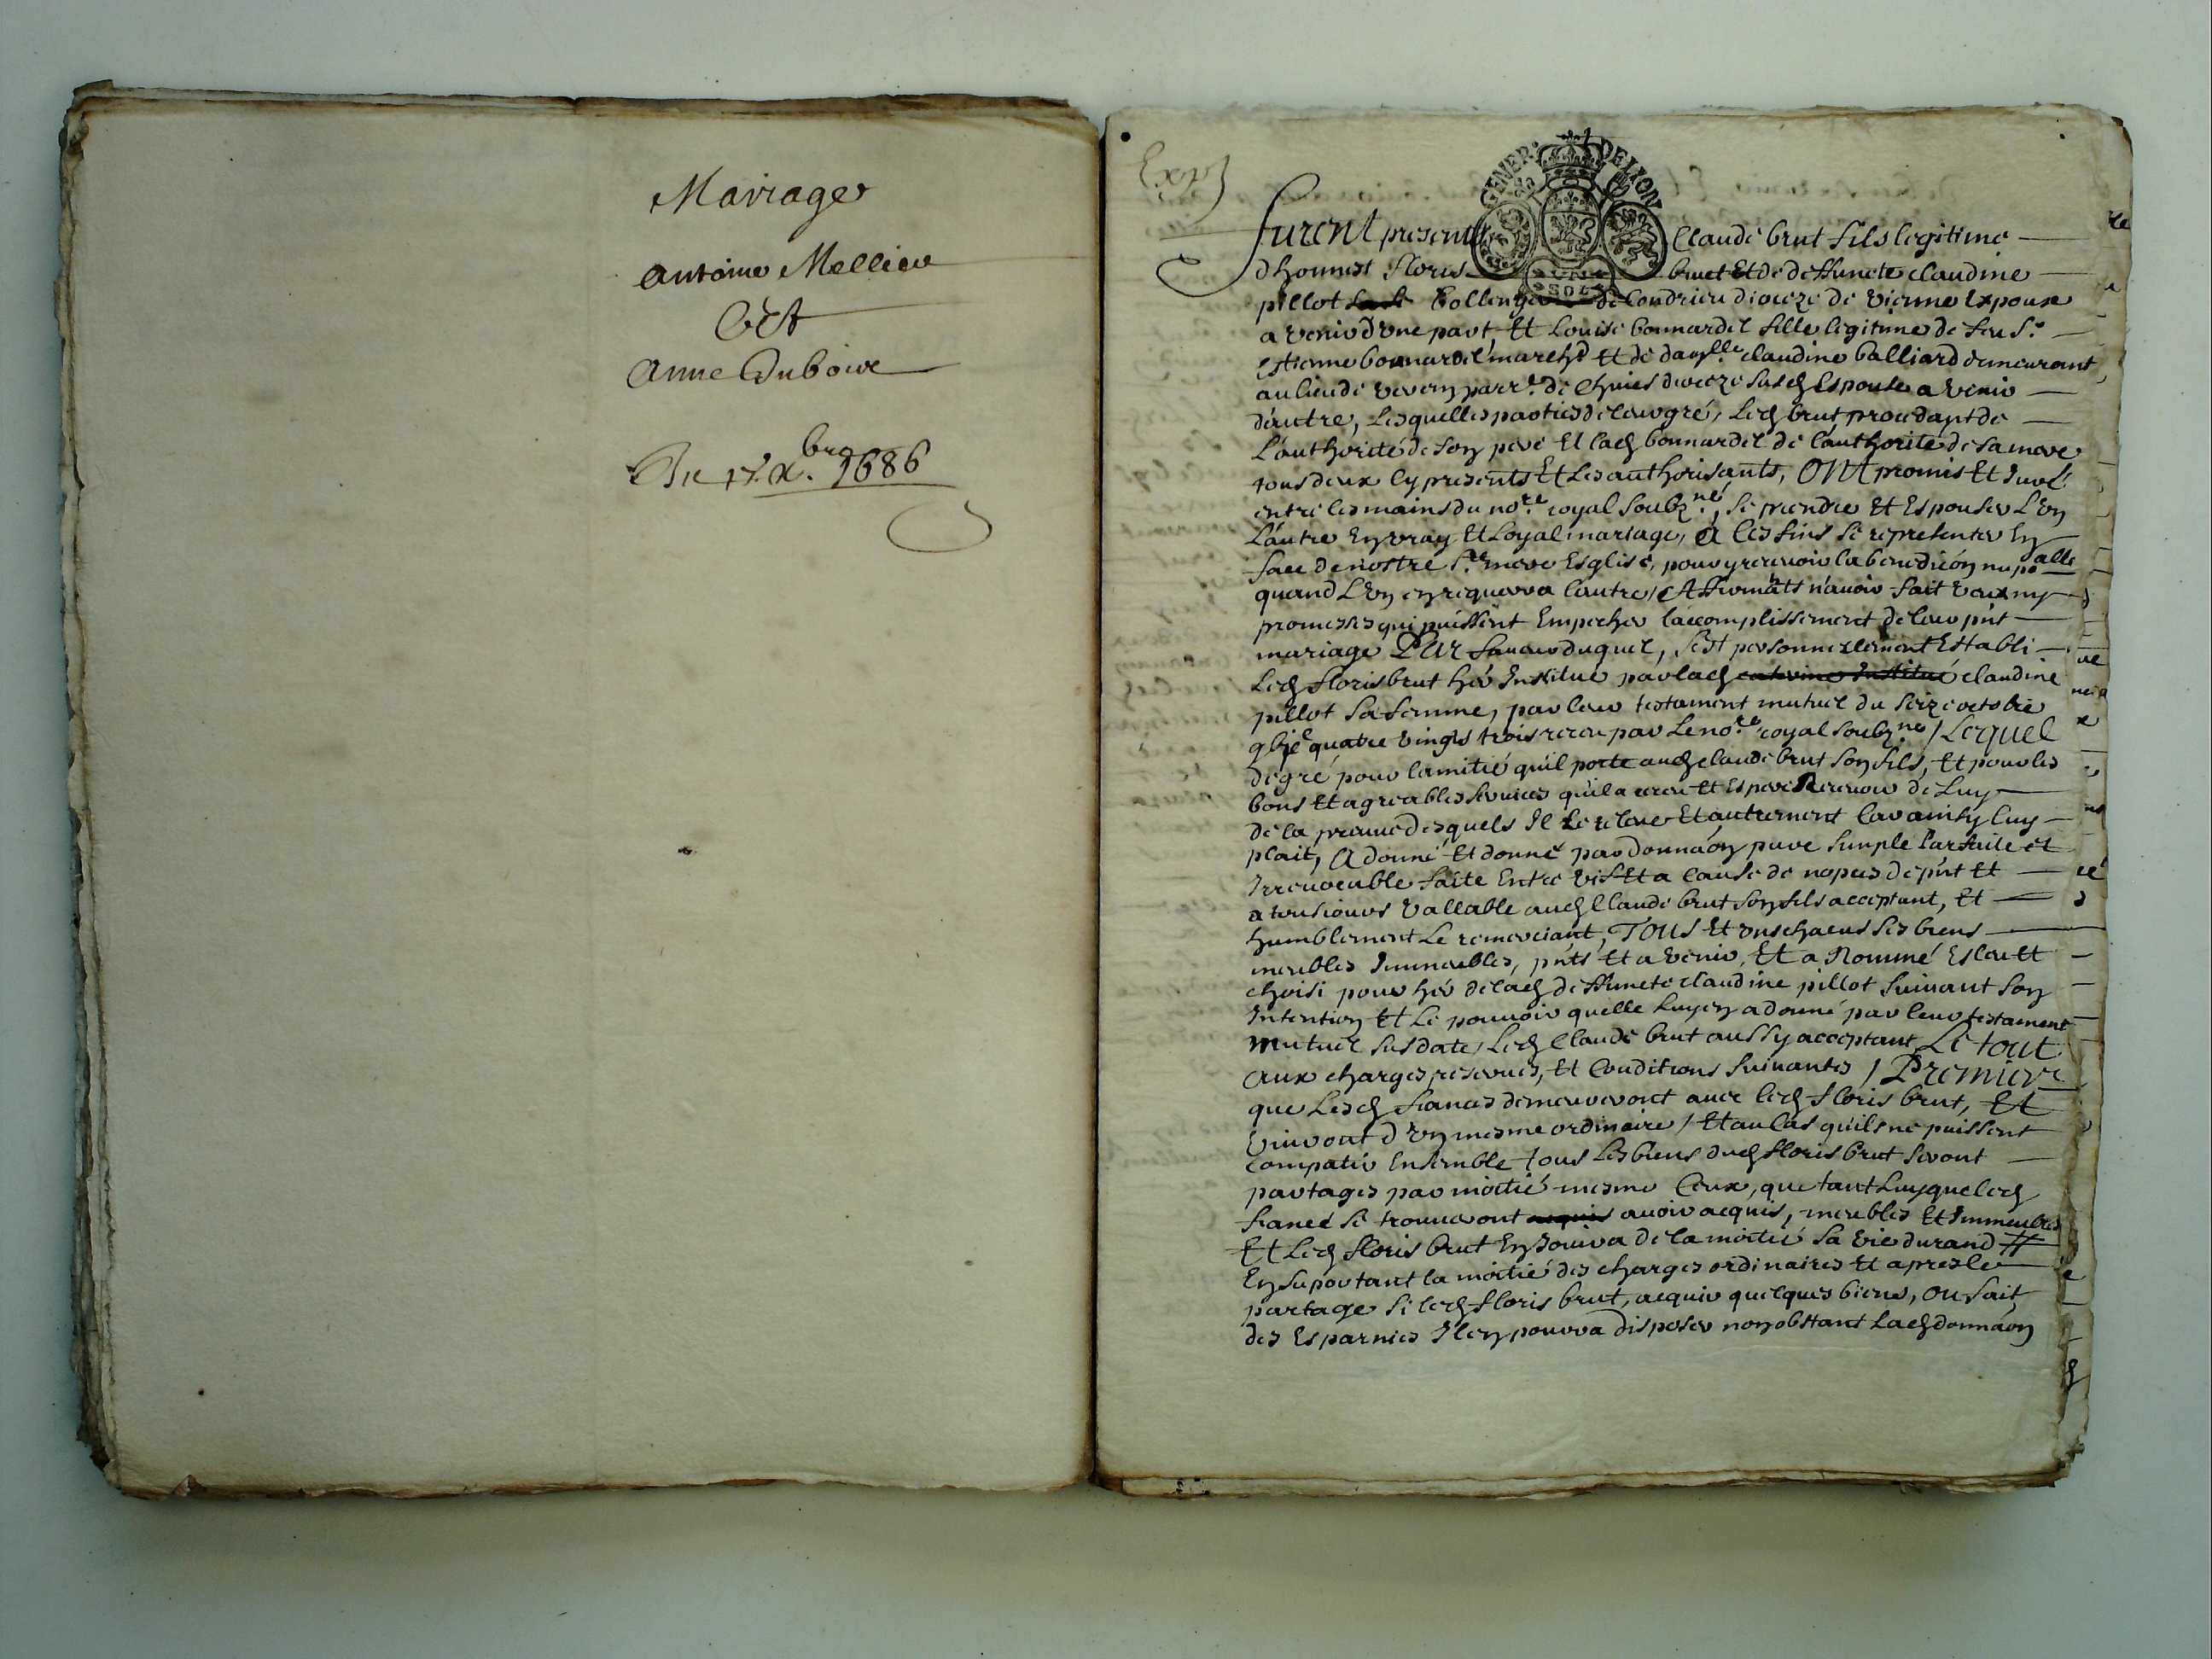 Mariage
Antoine Mellier
Et
Anne Duboix
Du 17 xbre 1686
Ext
GENER. DE LYON
Furent presents Claude brut fils legitime
dhonnest Floris brut Et de deffuncte claudine
pillot de Condrieu dioceze de vienne Expoux
a venir d'vne part, Et Louise bonnardel fille legitime de feu Sr.
Estienne bonnardel marchd Et de damlle claudine balliard demeurant
au lieu de parr.e de dioceze susd Espouse a venir
d'autre, Lesquelles parties de leur gré, Led brut procedant de
L'authorité de son pere Et lad bonnardel de l'authorité de sa mere
tous deux Cy presents Et Les authorisants, ONt promis Et Juré
entre les mains du no.re royal soubz.né, se prendre Et Espouser L'vn
L'autre En vray Et Loyal mariage, a Ces fins se representer En
face de nostre s.te mere Esglise, pour y recevoir la benediction nup.alle
quand L'vn en requerra l'autre / Affirmâts n'auoir fait veux ny
promesses qui puissent Empecher l'accomplissement de leur pnt
mariage PAR faueur duquel, s'est personnellement Establi
Led Floris brut her Institué par lad caterine Institué claudine
pillot sa femme, par leur testament mutuel du seize octobre
gbic quatre vingts trois receu par Le no.re royal soubz.né / Lequel
de gré pour l'amitié qu'il porte aud claude brut son fils, Et pour les
bons Et agreables services qu'il a receu Et Espere Recevoir de Luy
de la preuue desquels Il Le releve Et autrement Car ainsy luy
plait, A donné Et donne par donnaôn pure simple Parfaite et
Irreuocable faite Entre vifs Et a Cause de nopces de pnt Et
a tousiours vallable aud Claude brut son fils acceptant, Et
humblement Le remerciant, TOUS Et vns chacuns ses biens
meubles Immeubles, pnts Et a venir, Et a Nommé Esleu Et
choisi pour her de lad deffuncte claudine pillot suiuant son
Intention Et Le pouuoir quelle Luy en a donné par leur testament
mutuel susdate, Led Claude brut aussy acceptant Le tout
aux charges reserues, Et Conditions suiuantes / Premiere
que Lesd fiances demeureront auec led Floris brut, Et
viuront d'vn mesme ordinaire / Et au Cas qu'ils ne puissent
compatir Ensemble tous Les biens dud Floris brut seront
partages par moitié mesme Ceux, que tant Luy que led
fiancé se trouueront acquis auoir acquis, meubles Et Immeubles
Et Led Floris brut En Jouira de la moitié sa vie durand
En suportant la moitié des charges ordinaires Et apres le
partage si led Floris brut, acquir quelques biens, ou fait
des Esparnies Il en pourra disposer nonobstant Lad donnaôn